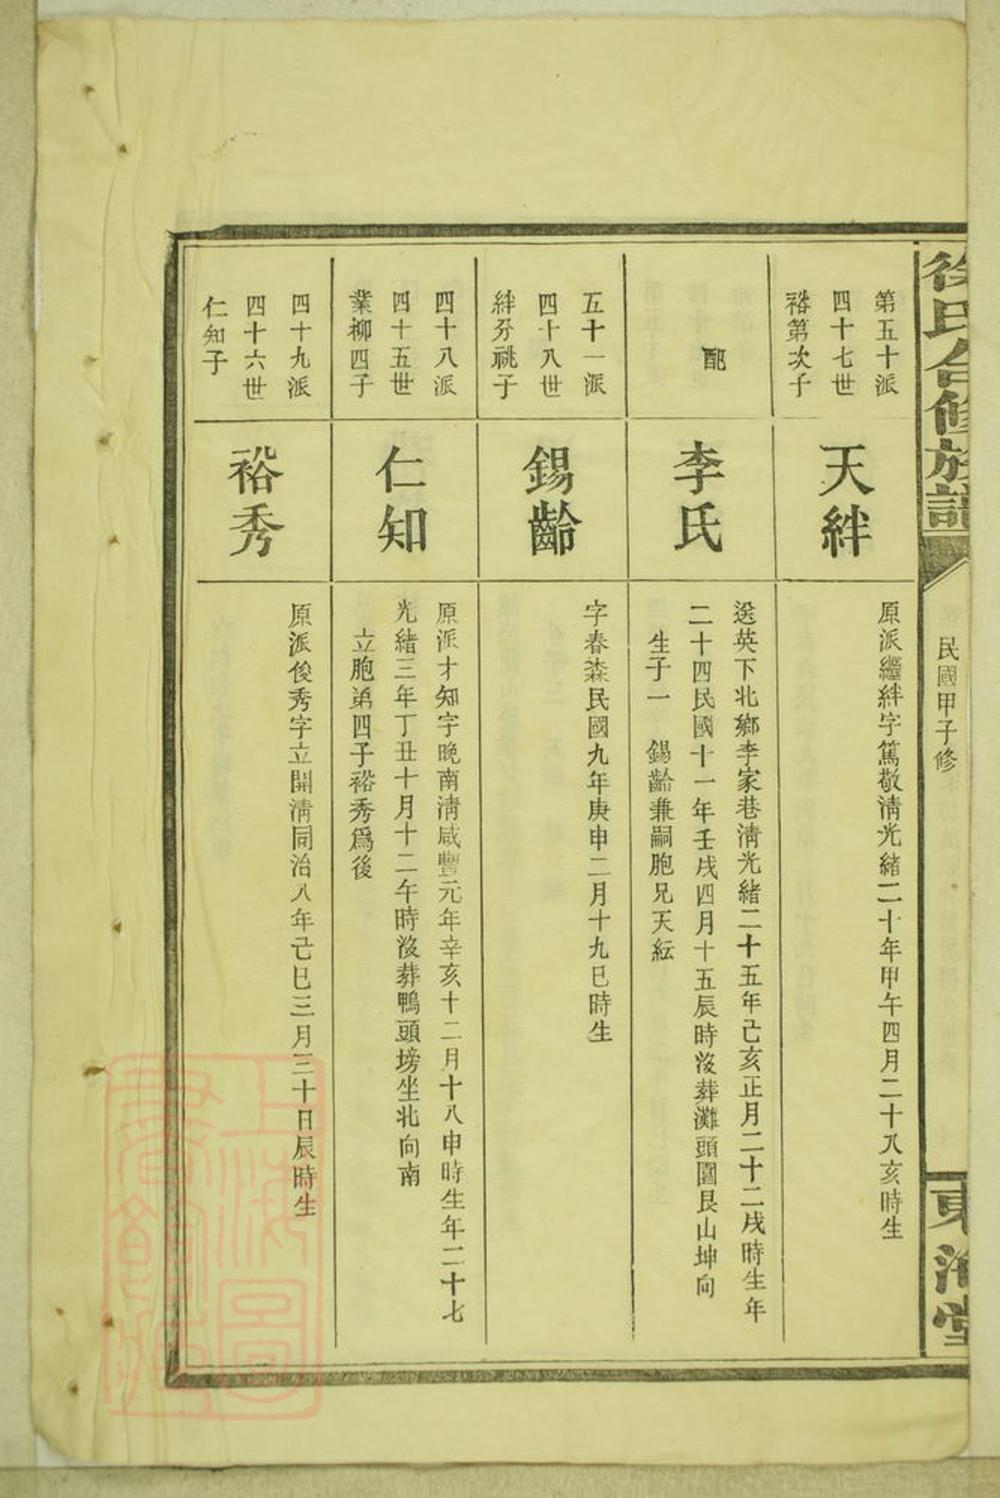 徐氏合修族譜
民國甲子修
東海堂
第五十派
四十七世
裕第次子
天絆
原派繼絆字篤敬淸光緒二十年甲午四月二十八亥時生
配
李氏
送英下北鄉李家巷淸光緒二十五年己亥正月二十二戌時生年
二十四民國十一年壬戌四月十五辰時沒葬灘頭園艮山坤向
生子一　錫齡兼嗣胞兄天紜
五十一派
四十八世
絆芬祧子
錫齡
字春森民國九年庚申二月十九巳時生
四十八派
四十五世
業柳四子
仁知
原派才知字晚南淸咸豐元年辛亥十二月十八申時生年二十七
光緒三年丁丑十月十二午時沒葬鴨頭塝坐北向南
立胞弟四子裕秀爲後
四十九派
四十六世
仁知子
裕秀
原派俊秀字立開淸同治八年己巳三月三十日辰時生
上海圖
書館藏